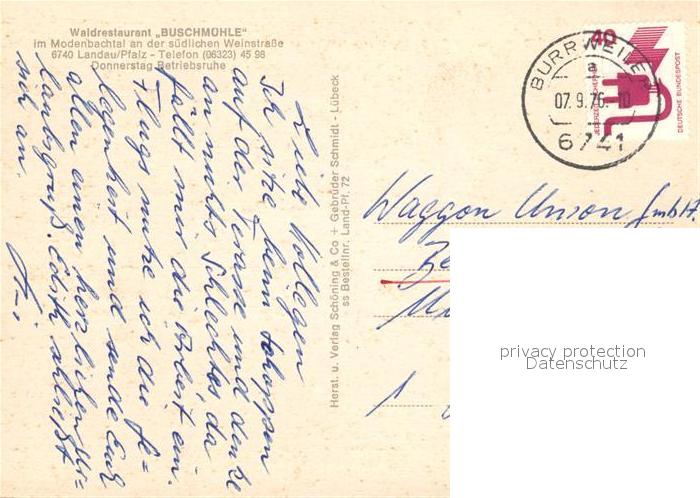 Waldrestaurant „BUSCHMÜHLE"
im Modenbachtal an der südlichen Weinstraße
6740 Landau/Pfalz - Telefon (06323) 45 98
Donnerstag Betriebsruhe
Liebe Kollegen
Ich sitze beim Schoppen
auf der Terasse und denke
an nichts Schlechtes da
fällt mir die Arbeit ein.
Flugs nutze ich die Ge-
legenheit und sende Euch
allen einen herzlichen Ur-
laubsgruß. Edith schließt
sich an.
Herst. u. Verlag Schöning & Co + Gebrüder Schmidt - Lübeck
ss Bestellnr. Land-Pf. 72
BURRWEILER
a
07.9.76.-10
6741
40
JEDERZEIT SICHERHEIT
DEUTSCHE BUNDESPOST
Waggon Union GmbH
1
privacy protection
Datenschutz